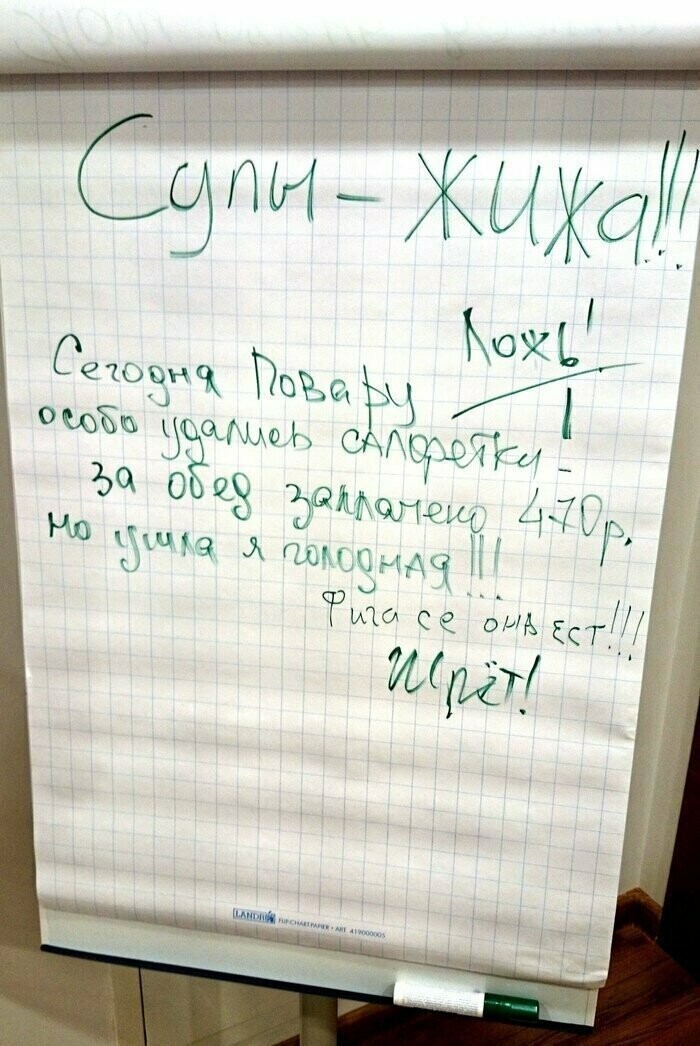 Супы - жижа!!!
Ложь!
Сегодня повару
особо удались салфетки -
за обед заплачено 470р.
но ушла я голодная!!!
Фига се она ест!!!
Жрёт!
LANDRÉ FLIP-CHART-PAPIER • ART. 419000005